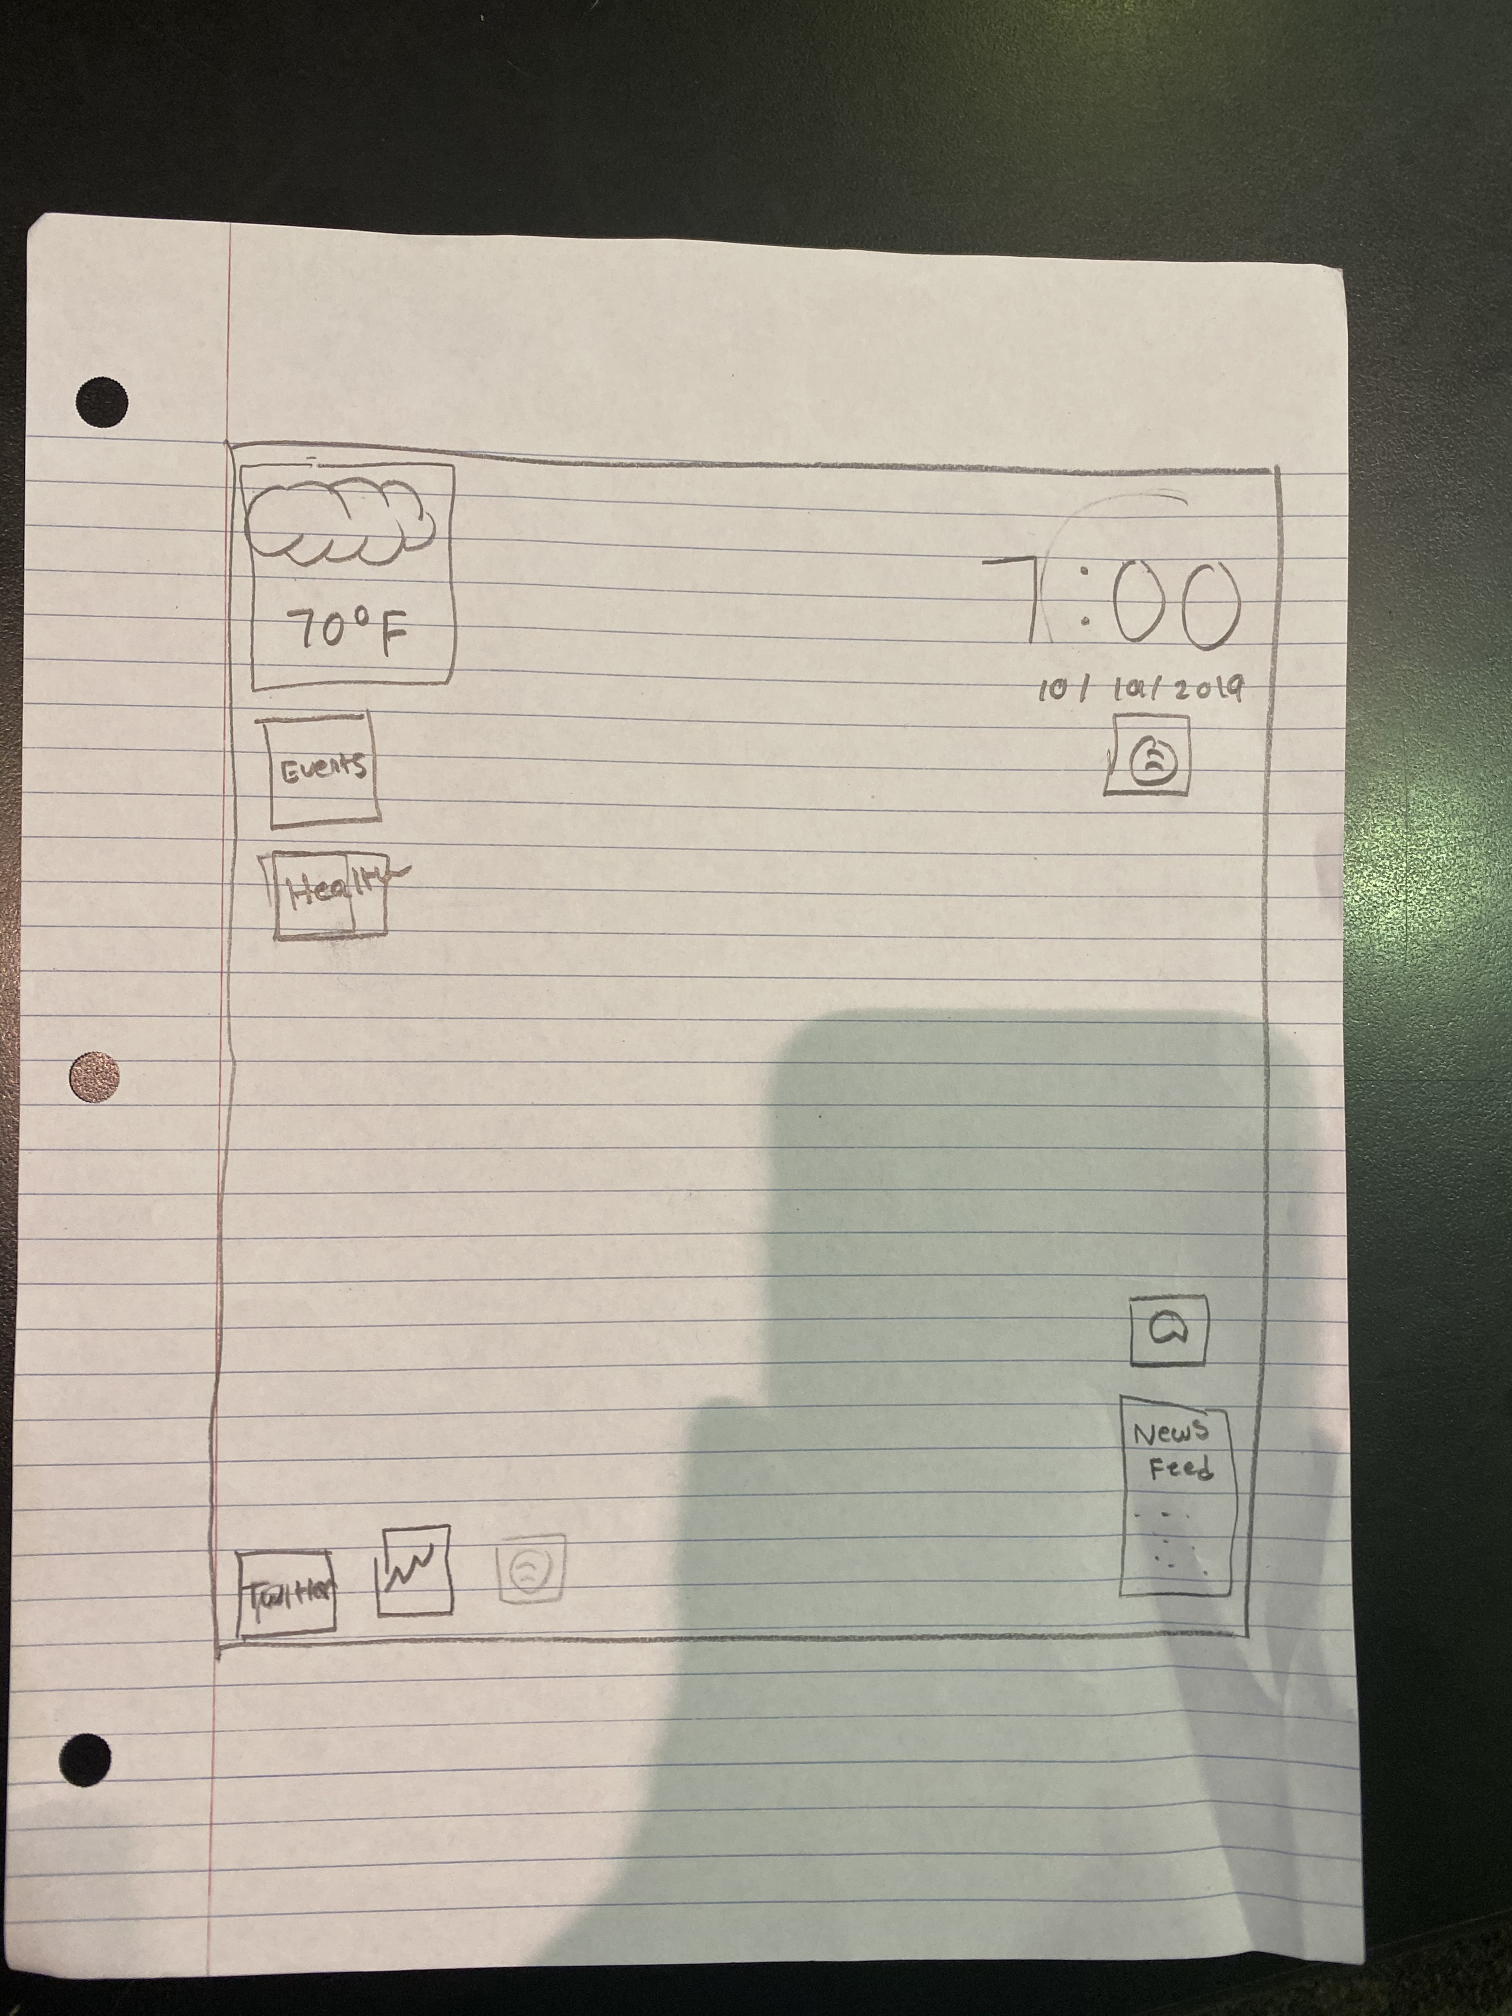 70°F
7:00
10/10/2019
Events
Health
News
Feed
Twitter